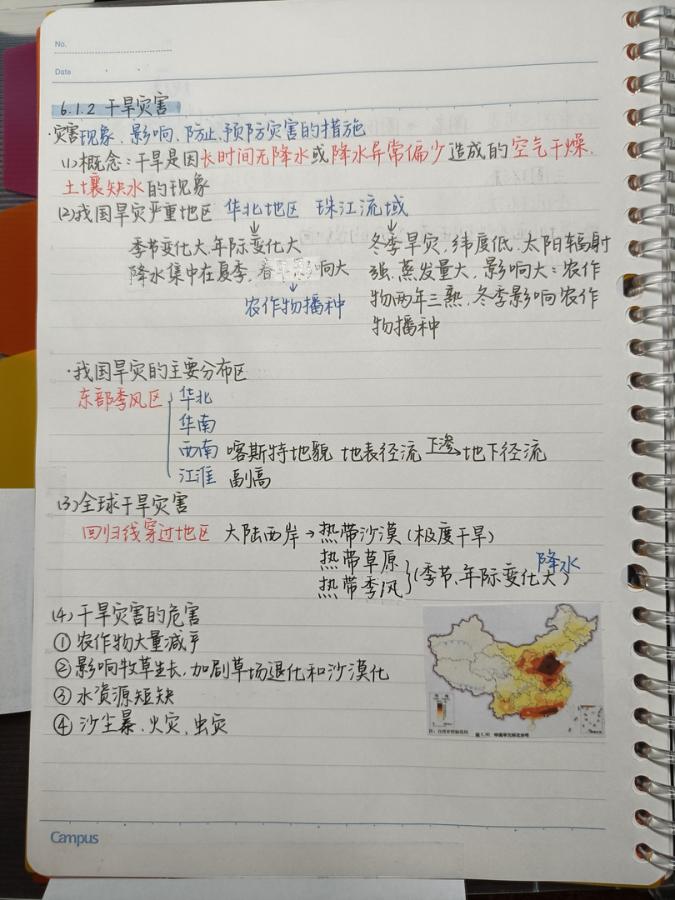 No.
Date
6.1.2 干旱灾害
·灾害现象、影响、防止、预防灾害的措施
(1)概念：干旱是因长时间无降水或降水异常偏少造成的空气干燥、
土壤缺水的现象
(2)我国旱灾严重地区 华北地区 珠江流域
↓ ↓
季节变化大、年际变化大 冬季旱灾，纬度低，太阳辐射
降水集中在夏季，春 影响大 强，蒸发量大，影响大：农作
↓
农作物播种 物两年三熟，冬季影响农作
物播种
·我国旱灾的主要分布区
东部季风区 华北
华南
西南 喀斯特地貌 地表径流 下渗→ 地下径流
江淮 副高
(3)全球干旱灾害
回归线穿过地区 大陆西岸→热带沙漠(极度干旱)
热带草原
热带季风 (季节、年际变化大) 降水
(4)干旱灾害的危害
①农作物大量减产
②影响牧草生长，加剧草场退化和沙漠化
③水资源短缺
④沙尘暴、火灾、虫灾
Campus